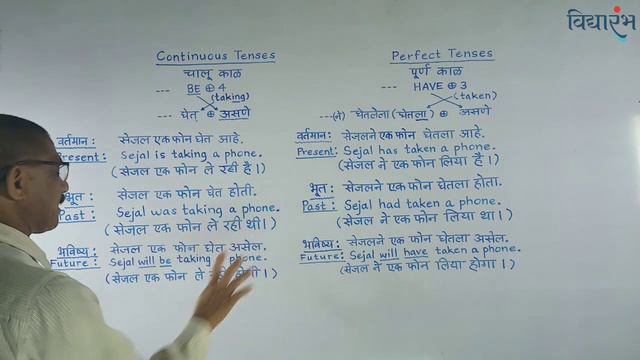 विद्यारंभ
Continuous Tenses
चालू काळ
--- BE ⊕ 4
(taking)
घेत् ⊕ असणे
वर्तमान: सेजल एक फोन घेत आहे.
Present: Sejal is taking a phone.
(सेजल एक फोन ले रही है।)
भूत: सेजल एक फोन घेत होती.
Past: Sejal was taking a phone.
(सेजल एक फोन ले रही थी।)
भविष्य: सेजल एक फोन घेत असेल.
Future: Sejal will be taking phone.
(सेजल एक फोन ले
Perfect Tenses
पूर्ण काळ
--- HAVE ⊕ 3
(taken)
---(ने) घेतलेला (घेतला) ⊕ असणे
वर्तमान: सेजलने एक फोन घेतला आहे.
Present: Sejal has taken a phone.
(सेजल ने एक फोन लिया है।)
भूत: सेजलने एक फोन घेतला होता.
Past: Sejal had taken a phone.
(सेजल ने एक फोन लिया था।)
भविष्य: सेजलने एक फोन घेतला असेल.
Future: Sejal will have taken a phone.
(सेजल ने एक फोन लिया होगा।)